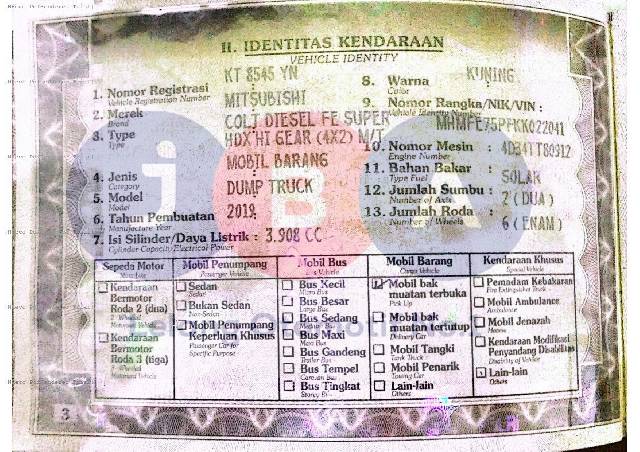 II. IDENTITAS KENDARAAN
VEHICLE IDENTITY
1. Nomor Registrasi KT 8545 YN
Vehicle Registration Number
2. Merek MITSUBISHI
Brand
3. Type COLT DIESEL FE SUPER
Type HDX HI GEAR (4X2) M/T
MOBIL BARANG
4. Jenis
Category
5. Model DUMP TRUCK
Model
6. Tahun Pembuatan 2019
Manufacture Year
7. Isi Silinder/Daya Listrik : 3.908 CC
Cylinder Capacity/Electrical Power
8. Warna : KUNING
Color
9. Nomor Rangka/NIK/VIN :
Vehicle Identity Number
MHMFE75PFKK022041
10. Nomor Mesin : 4D34TT80912
Engine Number
11. Bahan Bakar : SOLAR
Type Fuel
12. Jumlah Sumbu : 2 (DUA)
Number of Axis
13. Jumlah Roda : 6 (ENAM)
Number of Wheels
Sepeda Motor
Mobil Penumpang
Passenger Vehicle
Mobil Bus
Bus Vehicle
Mobil Barang
Cargo Vehicle
Kendaraan Khusus
Special Vehicle
Kendaraan
Bermotor
Roda 2 (dua)
Kendaraan
Bermotor
Roda 3 (tiga)
Sedan
Sedan
Bukan Sedan
Non-Sedan
Mobil Penumpang
Keperluan Khusus
Passenger Car for
Specific Purpose
Bus Kecil
Micro Bus
Bus Besar
Large Bus
Bus Sedang
Medium Bus
Bus Maxi
Maxi Bus
Bus Gandeng
Trailer Bus
Bus Tempel
Caravan Bus
Bus Tingkat
Mobil bak
muatan terbuka
Pick Up
Mobil bak
muatan tertutup
Delivery Car
Mobil Tangki
Tank Truck
Mobil Penarik
Towing Car
Lain-lain
Others
Pemadam Kebakaran
Fire Extinguisher Truck
Mobil Ambulance
Ambulance
Mobil Jenazah
Hearse
Kendaraan Modifikasi
Penyandang Disabilitas
Lain-lain
Others
3
iBA